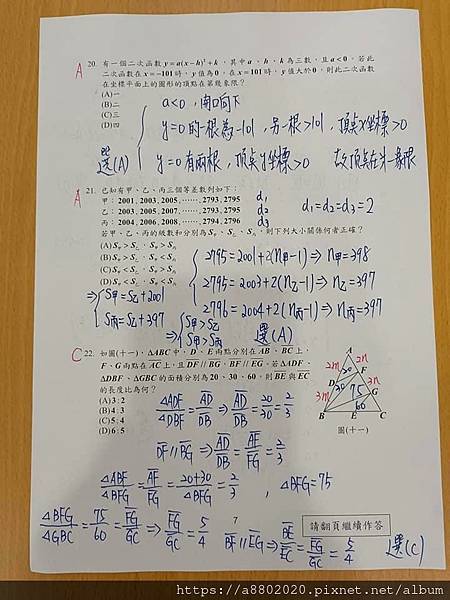 A 20. 有一個二次函數 y=a(x-h)²+k，其中a、h、k為三數，且a<0。若此
二次函數在x=-101時，y值為0，在x=101時，y值大於0，則此二次函數
在坐標平面上的圖形的頂點在第幾象限？
(A)一
(B)二
(C)三
(D)四
選(A)
a<0，開口向下
y=0的一根為-101，另一根>101，頂點x坐標>0
y=0有兩根，頂點y坐標>0 故頂點在第一象限
A 21. 已知有甲、乙、丙三個等差數列如下：
甲：2001, 2003, 2005, ……, 2793, 2795 d₁
乙：2003, 2005, 2007, ……, 2793, 2795 d₂
丙：2004, 2006, 2008, ……, 2794, 2796 d₃
d₁=d₂=d₃=2
若甲、乙、丙的級數和分別為S甲、S乙、S丙，則下列大小關係何者正確？
(A)S甲>S乙，S丙>S乙
(B)S甲>S乙，S丙<S乙
(C)S甲<S乙，S丙>S乙
(D)S甲<S乙，S丙<S乙
2795=2001+2(n甲-1)⇒n甲=398
2795=2003+2(n乙-1)⇒n乙=397
2796=2004+2(n丙-1)⇒n丙=397
⇒ S甲=S乙+2001
S丙=S乙+397
⇒ S甲>S乙
S丙>S乙
選(A)
C 22. 如圖(十一)，△ABC中，D、E兩點分別在AB、BC上，
F、G兩點在AC上，且DF // BG、BF // EG。若△ADF、
△DBF、△GBC的面積分別為20、30、60，則BE與EC
的長度比為何？
(A) 3：2
(B) 4：3
(C) 5：4
(D) 6：5
A
2m 2n
20
D F
3m 30 3n
75 G
60
B E C
圖(十一)
△ADF/△DBF=AD/DB⇒AD/DB=20/30=2/3
DF//BG⇒AD/DB=AF/FG=2/3
△ABF/△BFG=AF/FG=20+30/△BFG=2/3，△BFG=75
△BFG/△GBC=75/60=FG/GC⇒FG/GC=5/4
BF//EG⇒BE/EC=FG/GC=5/4 選(C)
7
請翻頁繼續作答
https://a8802020.pixnet.net/album